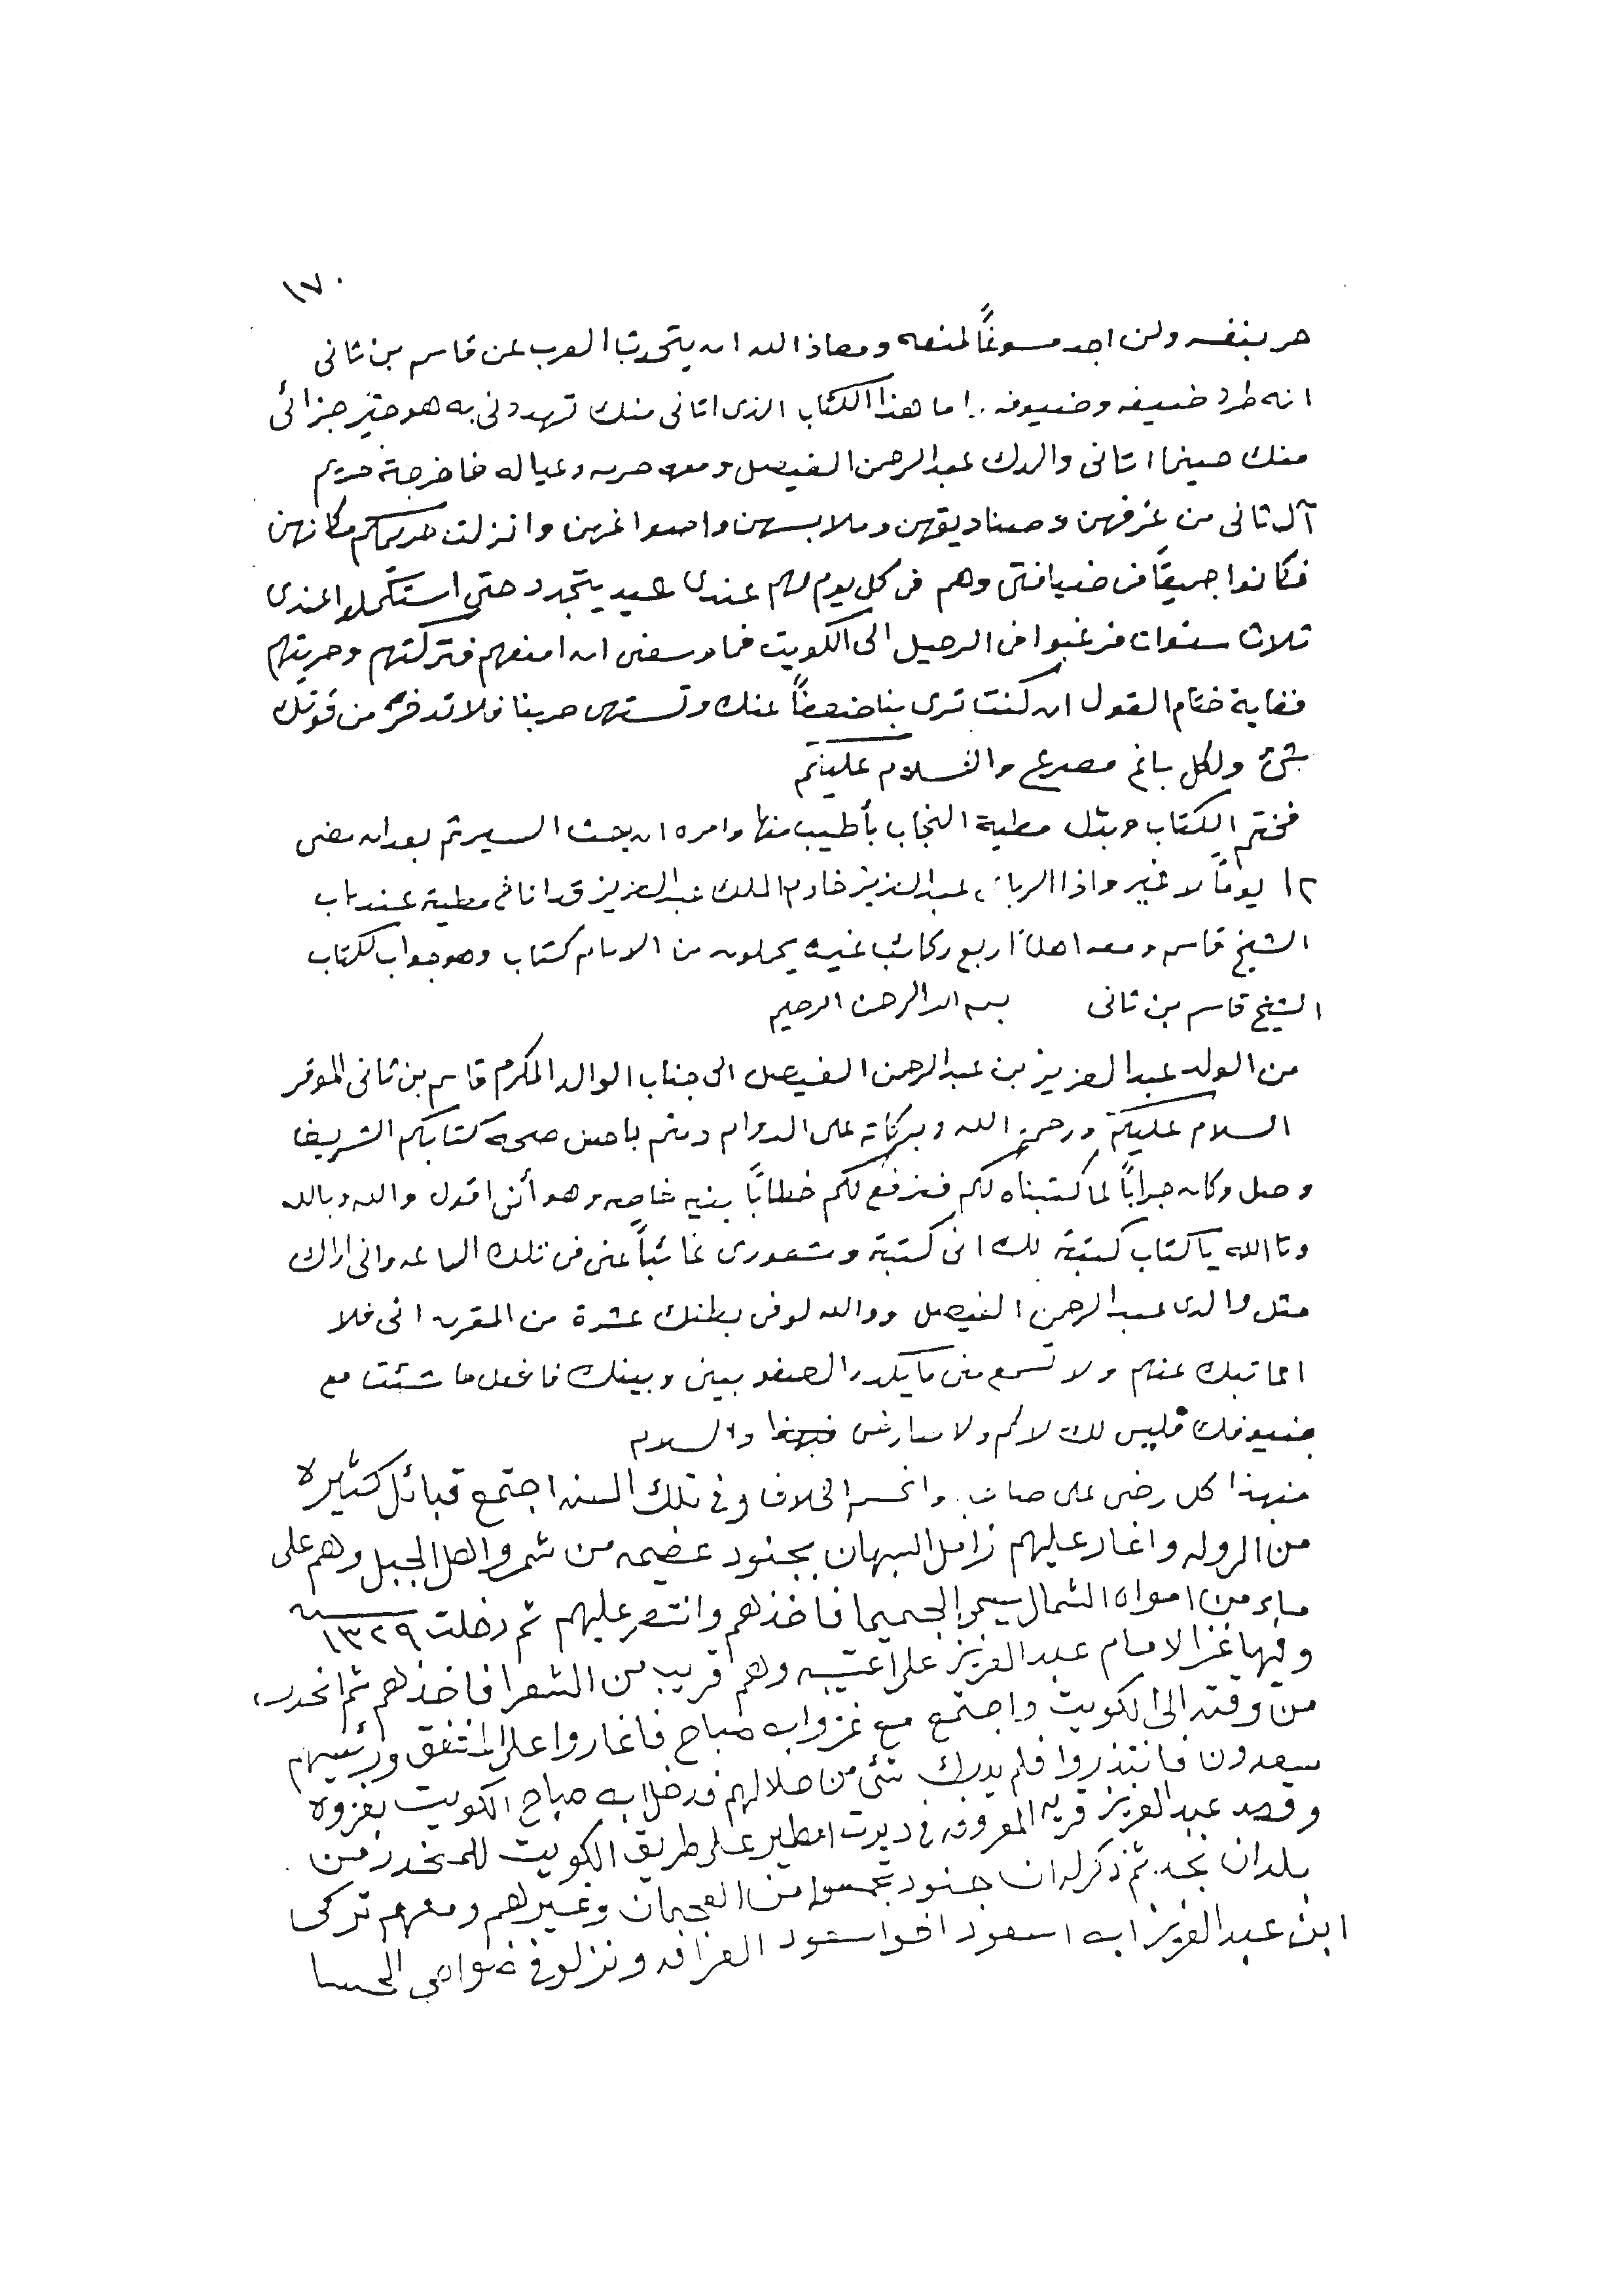 ١٧٠
حر بنفسه ولن اجد مسوغاً لمنعه ومعاذ الله ان يتحدث العرب عن قاسم بن ثاني
انه طرد ضيفه وضيوفه .. اما هذا الكتاب الذي اتاني منك تهددني به هو خير جزائي
منك حينما اتاني والدك عبدالرحمن الفيصل ومعه حريمه وعياله فاخرجة حريم
آل ثاني من غرفهن وصناديقهن وملابسهن واصواغهن وانزلت حريمكم مكانهن
فكانوا جميعاً في ضيافتي وهم في كل يوم لهم عندي عيد يتجدد حتى استكملوا عندي
ثلاث سنوات فرغبوا في الرحيل الى الكويت فما وسعني ان امنعهم فتركتهم وحريتهم
فغاية ختام القول ان كنت ترى بنا ضعفاً عنك وتستهي حربنا فلا تدخر من قوتك
شيء ولكل باغ مصرع والسلام عليكم
فختم الكتاب وبدل مطية النجاب بأطيب منها وامره ان يحث السير ثم بعد ان مضى
١٢ يوماً لا غير واذا الرباعي عبدالعزيز خادم الملك عبدالعزيز قد اناخ مطيته عند باب
الشيخ قاسم ومعه اهل اربع ركائب غيره يحملون من الامام كتاب وهو جواب لكتاب
الشيخ قاسم بن ثاني بسم الله الرحمن الرحيم
من الولد عبدالعزيز بن عبدالرحمن الفيصل الى جناب الوالد المكرم قاسم بن ثاني الموقر
السلام عليكم ورحمة الله وبركاته على الدوام دمتم باحسن صحه كتابكم الشريف
وصل وكان جواباً لما كتبناه لكم فنرفع لكم خطاباً بنيه خاصه وهو أني اقول والله وبالله
وتالله يا كتاب كتبته لك اني كتبته وشعوري غائباً عني في تلك الساعه واني اراك
مثل والدي عبدالرحمن الفيصل ووالله لو في بطنك عشرة من المقرن اني فلا
اعاتبك عنهم ولا تسمع مني ما يكدر الصفو بيني وبينك فافعل ما شئت مع
ضيوفك فليس لك لائم ولا معارض والسلام
فبهذا كل رضي على صاحبه وانحسم الخلاف وفي تلك السنه اجتمع قبائل كثيره
من الروله واغار عليهم زامل السبهان بجنود عضيمه من شمر واهل الجبل وهم على
ماء من امواه الشمال يسمى الجميما فاخذهم وانتصر عليهم ثم دخلت سنه ١٣٢٩
وفيها غزا الامام عبدالعزيز على اعتيبه وهم قريب من الشعرا فاخذهم ثم انحدر
من وقته الى الكويت واجتمع مع غزو ابن صباح فاغاروا على المنتفق ورئيسهم
سعدون فانتذروا فلم يدرك شئ من حلالهم فدخل ابن صباح الكويت بغزوه
وقصد عبدالعزيز قريه المعروفه في ديرت امطير على طريق الكويت للمنحدر من
بلدان نجد. ثم ذكر له ان جنود تجمعوا من العجمان وغيرهم ومعهم تركي
ابن عبدالعزيز ابن اسعود اخو اسعود العرافه ونزلو في ضواحي الحسا